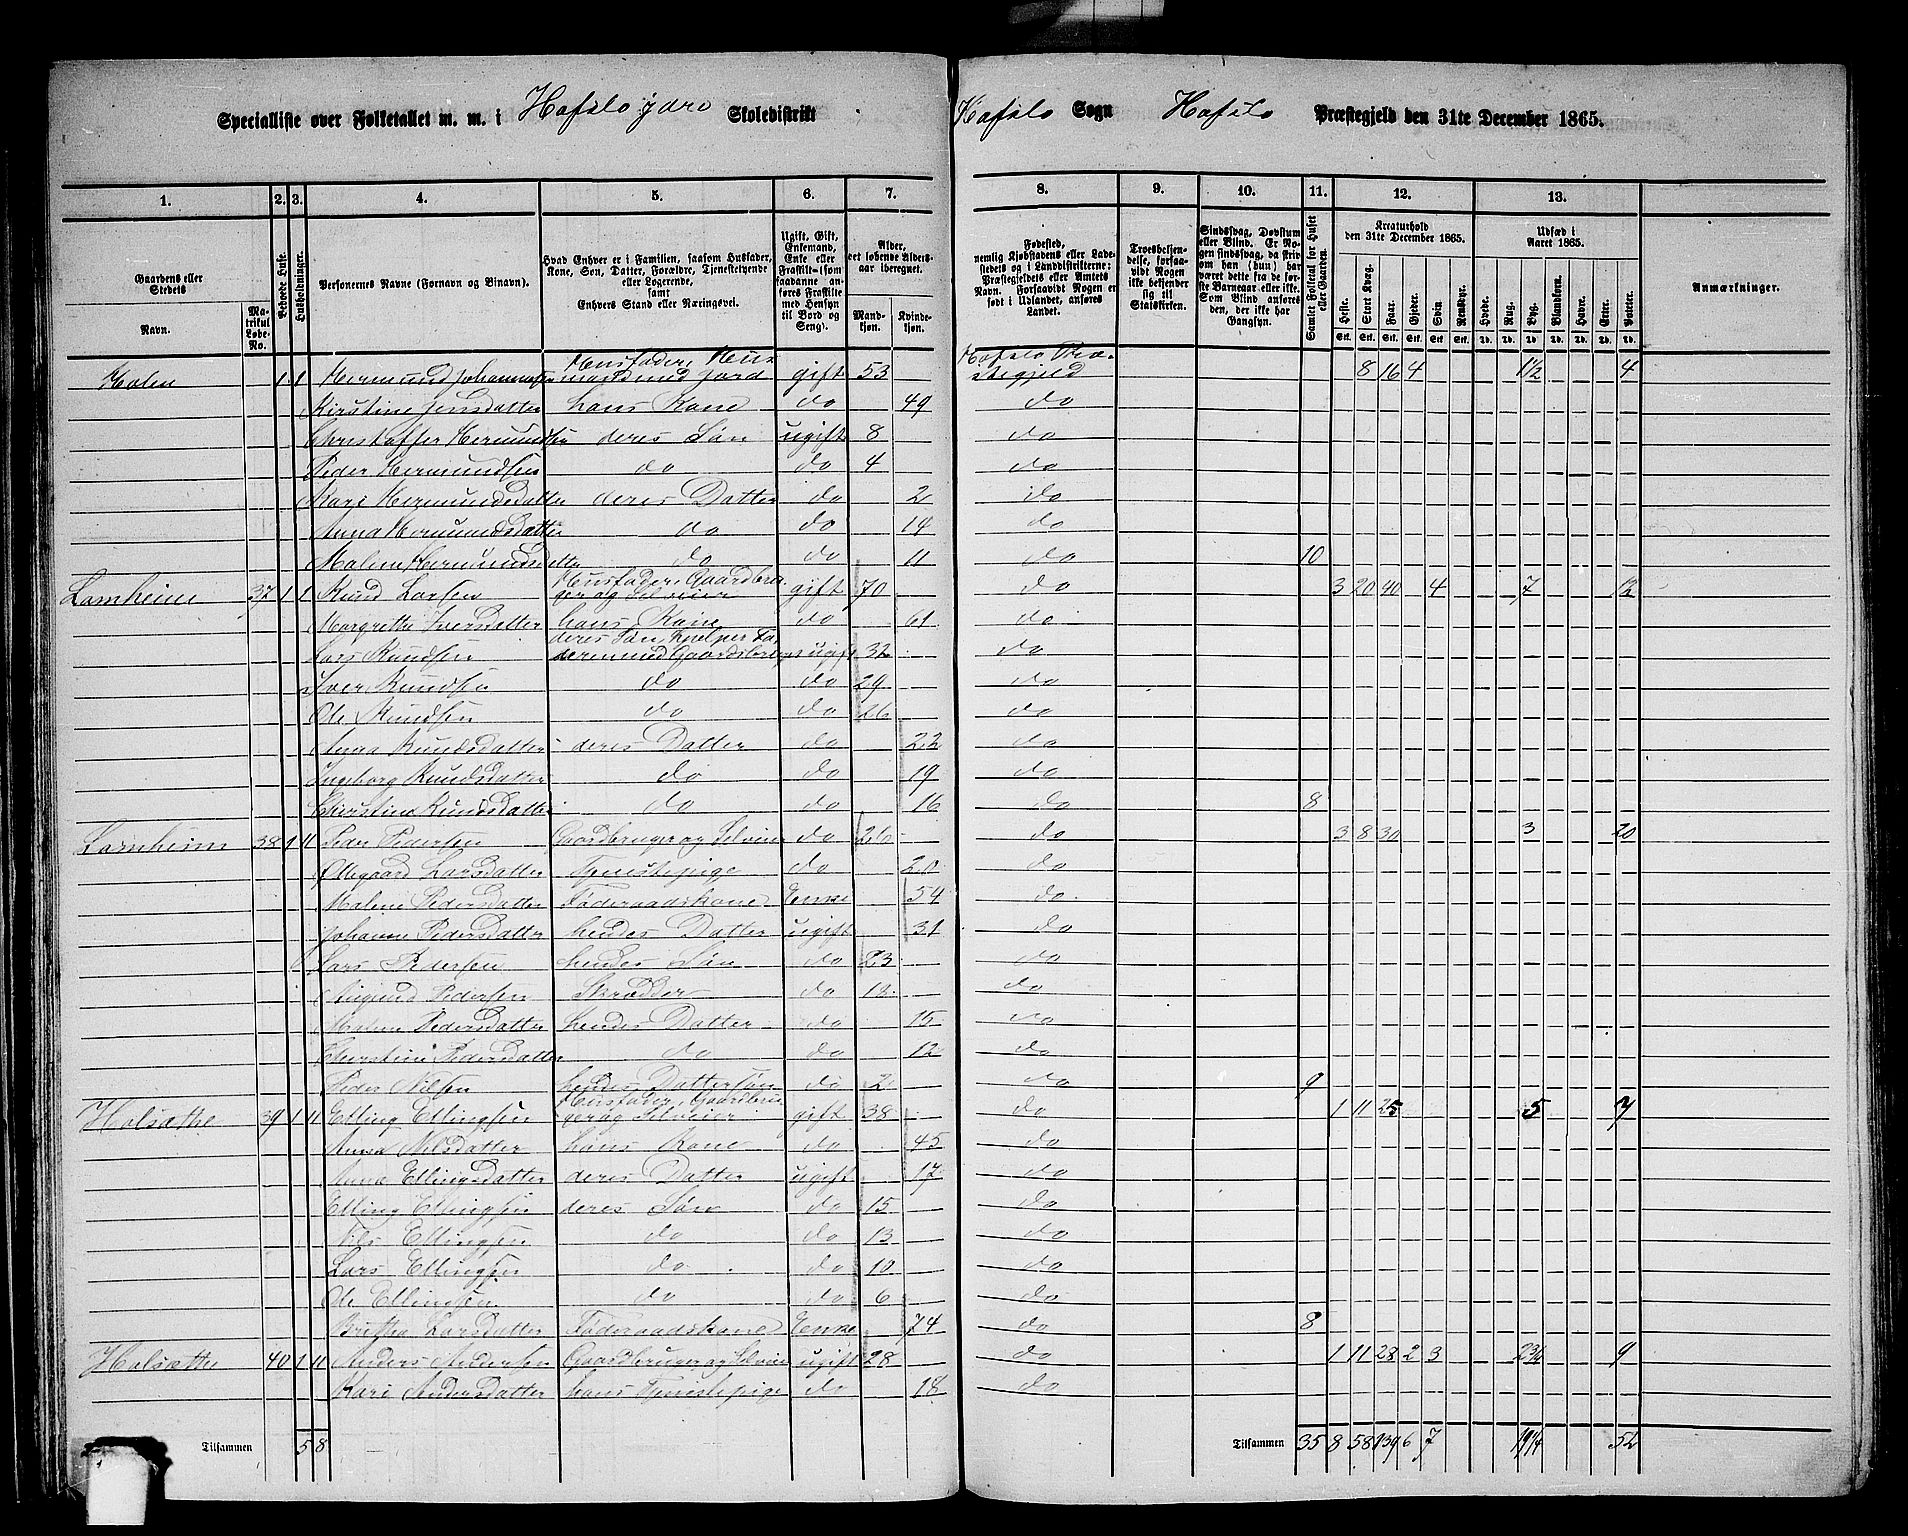 Specialliste over Folketallet m. m. i Hafslo ydre Skoledistrikt Hafslo Sogn Hafslo Præstegjeld den 31te December 1865.
1. 2. 3. 4. 5. 6. 7. 8. 9. 10. 11. 12. 13.
Gaardens eller Stedets Navn. Matrikul Løbe-No. Beboede Huse. Husholdninger. Personernes Navne (Fornavn og Binavn). Hvad Enhver er i Familien, saasom Husfader, Kone, Søn, Datter, Forældre, Tjenestetyende eller Logerende, samt Enhvers Stand eller Næringsvei. Ugift, Gift, Enkemand, Enke eller Fraskilt (som saadanne anføres Fraskilte med Hensyn til Bord og Seng). Alder, det løbende Alders-aar iberegnet. Mandkjøn. Kvindekjøn. Fødested, nemlig Kjøbstadens eller Ladestedets og i Landdistrikterne: Præstegjeldets eller Amtets Navn. Forsaavidt Nogen er født i Udlandet, anføres Landet. Troesbekjendelse, forsaavidt Nogen ikke bekjender sig til Statskirken. Sindssvag, Døvstum eller Blind. Er Nogen sindssvag, da skrives om han (hun) har været dette fra de første Barneaar eller ikke. Som Blind anføres den, der ikke har Gangsyn. Samlet Folketal for Huset eller Gaarden. Kreaturhold den 31te December 1865. Heste. Stort Kvæg. Faar. Gjeder. Svin. Rensdyr. Udsæd i Aaret 1865. Hvede. Rug. Byg. Blandkorn. Havre. Erter. Poteter. Anmærkninger.
Molen 1 1 Hermund Johannesen Husfader, Husmand med Jord gift 53 Hafslo Præstegjeld 8 16 4 1½ 4
Kirstine Jensdatter hans Kone do 49 do
Christoffer Hermundsen deres Søn ugift 8 do
Peder Hermundsen do do 4 do
Kari Hermundsdatter deres Datter do 2 do
Anna Hermundsdatter do do 14 do
Malene Hermundsdatter do do 11 do 10
Lamheim 37 1 1 Knud Larsen Husfader, Gaardbruger og Selveier gift 70 do 3 20 40 4 7 12
Margrethe Iversdatter hans Kone do 61 do
Lars Knudsen deres Søn, hjelper Faderen med Gaardsbruget ugift 32 do
Iver Knudsen do do 29 do
Ole Knudsen do do 26 do
Anna Knudsdatter deres Datter do 22 do
Ingeborg Knudsdatter do do 19 do
Christine Knudsdatter do do 16 do 8
Lamheim 38 1 11 Peder Pedersen Gaardbruger og Selveier do 26 do 3 8 30 3 20
Ollegaard Larsdatter Tjenestepige do 20 do
Malene Pedersdatter Føderaadskone Enke 54 do
Johanne Pedersdatter hendes Datter ugift 31 do
Lars Pedersen hendes Søn do 23 do
Pedersen Skrædder do 13 do
Malene Pedersdatter hendes Datter do 15 do
Christine Pedersdatter do do 12 do
Peder Nilsen hendes Dattersøn do 2 do 9
Molsæthe 39 1 11 Elling Ellingsen Husfader, Gaardbruger og Selveier gift 38 do 1 11 25 5 7
Anna Nilsdatter hans Kone do 45 do
Anna Ellingsdatter deres Datter ugift 17 do
Elling Ellingsen deres Søn do 15 do
Nils Ellingsen do do 13 do
Lars Ellingsen do do 10 do
Ole Ellingsen do do 6 do
Britha Larsdatter Føderaadskone Enke 74 do 8
Molsæthe 40 1 11 Anders Andersen Gaardbruger og Selveier ugift 28 do 1 11 28 2 3 2¾ 9
Kari Andersdatter hans Tjenestepige do 18 do
Tilsammen 5 8 Tilsammen 35 8 58 139 6 7 19¼ 52